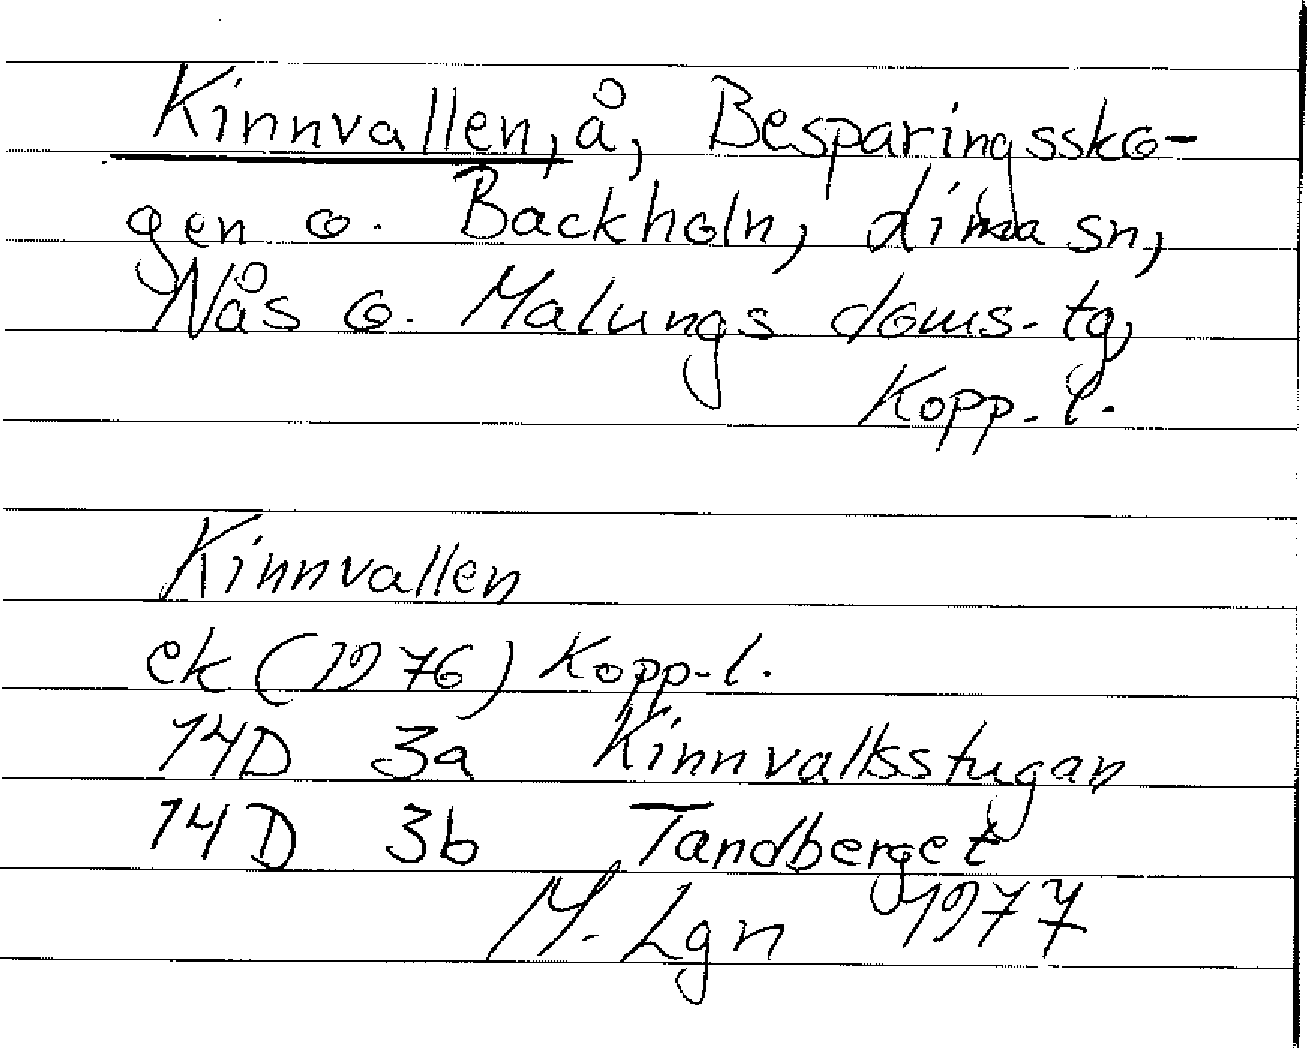 Kinnvallen, å, Besparingssko-
gen o. Backholn, Lima sn,
Nås o. Malungs doms. tg,
Kopp. l.
Kinnvallen
ek (1976) Kopp. l.
14D 3a Kinnvallsstugan
14D 3b Tandberget
M. Lgn 1977